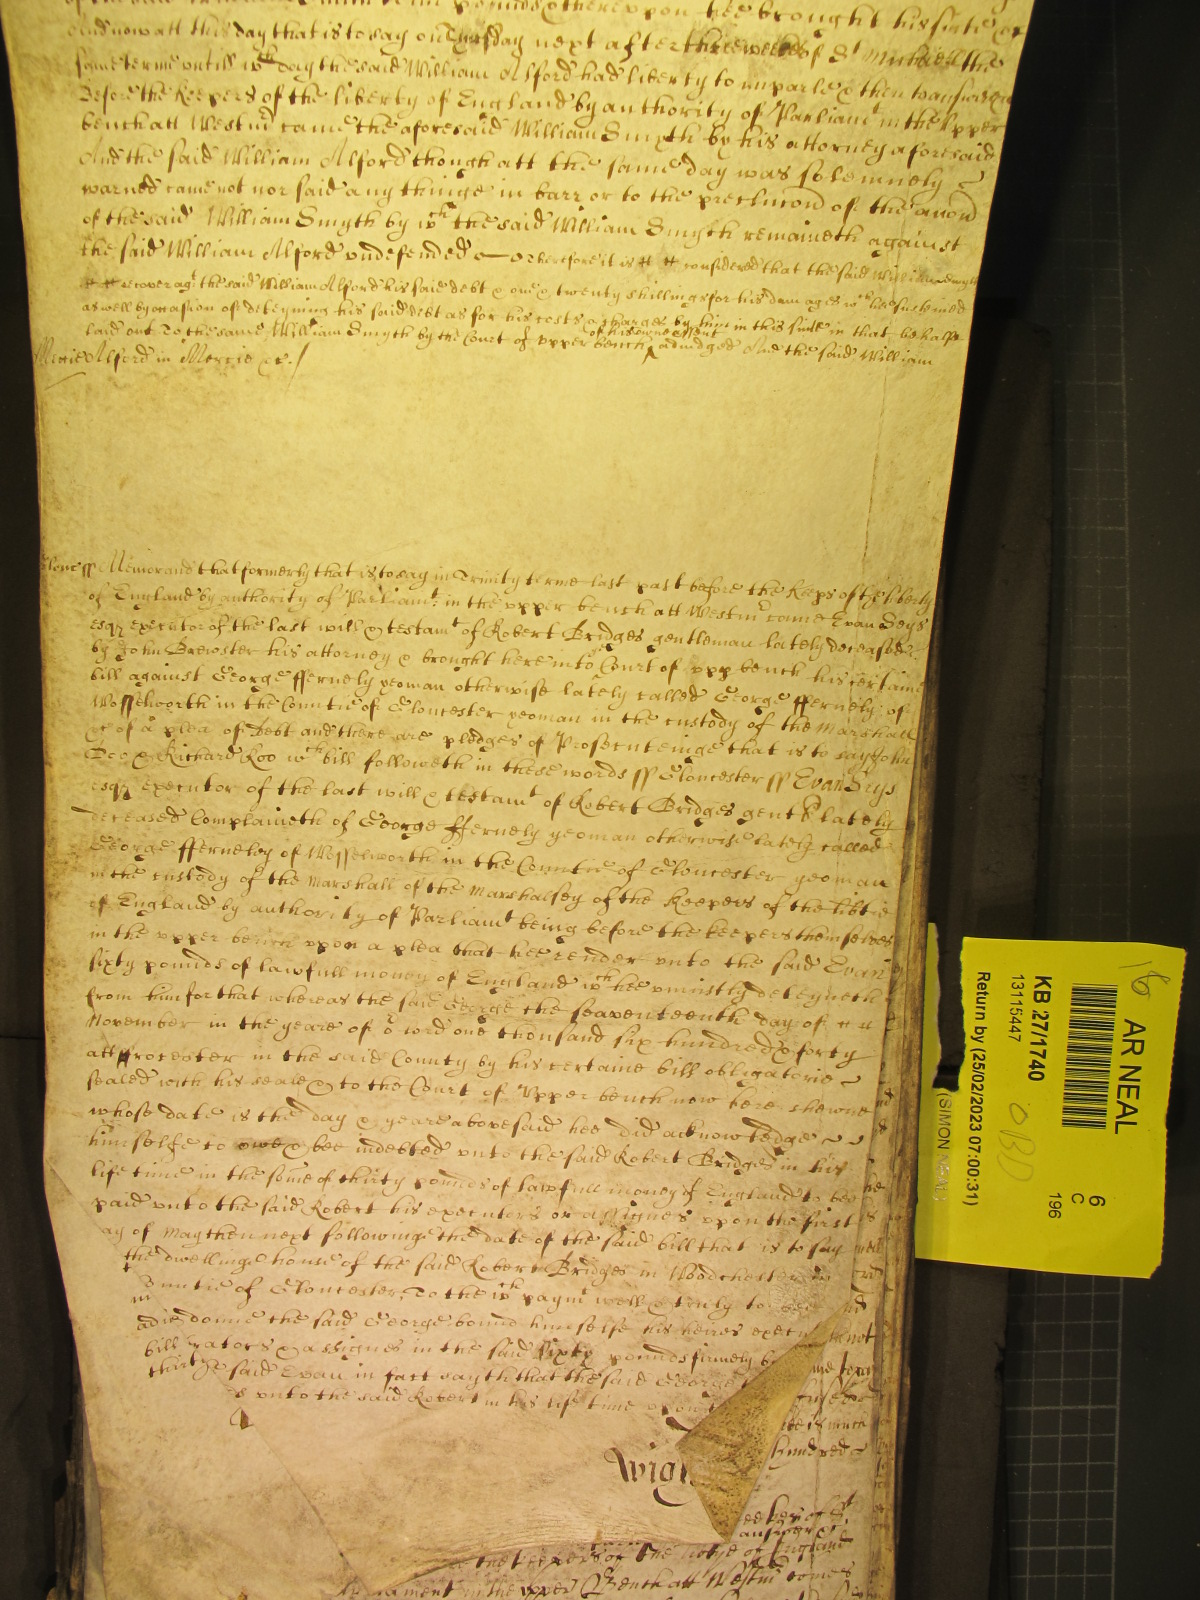 pounds & thereupon hee brought his suite &c
And now att this day that is to say on Thursday next after three weekes of St Michaell the
same terme untill wch day the said William Alford had liberty to imparle & then to answer &c
Before the Keepers of the liberty of England by authority of Parliamt in the Upper
bench att Westmr came the aforesaid William Smyth by his attorney aforesaid
And the said William Alford though att the same day was solemnely
warned came not nor said any thinge in barr or to the preclucon of the accon
of the said William Smyth by wch the said William Smyth remaineth against
the said William Alford undefended Therefore it is considered that the said William Smyth
recover agt the said William Alford his said debt & one & twenty shillings for his damages wch hee susteined
as well by occasion of deteyning his said debt as for his costs & charges by him in this suite in that behalfe
laid out To the same William Smyth by the Court of upper bench of his owne assent adiudged And the said William
Mercie Alford in Mercie &c./
Glouc ss Memorand that formerly that is to say in Trinity terme last past before the Keeps of the liberty
of England by authority of Parliamt in the upper bench att Westmr came Evan Seys
esqr executor of the last will & testamt of Robert Bridges gentleman lately deceased
by John Brewster his attorney & brought here into Court of upp bench his certaine
bill against George ffernely yeoman otherwise lately called George ffernely of
Wosselworth in the Countie of Gloucester yeoman in the custody of the Marshall
&c of a plea of Debt and there are pledges of Prosecuteinge that is to say John
Doo & Richard Roo wch bill followeth in these words ss Gloucester ss Evan Seys
esqr executor of the last will & testamt of Robert Bridges gent lately
deceased Complaineth of George ffernely yeoman otherwise lately called
George fferneley of Wosselworth in the Countie of Gloucester yeoman
in the custody of the Marshall of the Marshalsey of the Keepers of the libtie
of England by authority of Parliamt being before the keepers themselves
in the upper bench upon a plea that hee render unto the said Evan
sixty pounds of lawfull money of England wch hee uniustly deteyneth
from him for that whereas the said George the seaventeenth day of
November in the yeare of or Lord one thousand six hundred & forty
att ffrocester in the said County by his certaine bill obligatorie
sealed with his seale & to the Court of Upper bench now here shewne
whose date is the day & yeare abovesaid hee did acknowledge
himselfe to owe & bee indebted unto the said Robert Bridges in his
life time in the some of thirty pounds of lawfull money of England to bee
paid unto the said Robert his executors or assignes upon the first
ay of May then next followinge the date of the said bill that is to say
the dwellinge house of the said Robert Bridges in Woodchester
ountie of Gloucester, To the wch paymt well & truly to bee
donne the said George bound himselfe his heires execu
rators & assignes in the said sixty pounds firmely b
e said Evan in fact sayth that the said George
unto the said Robert in his life time upon
in
adie
bill
thirt
not
me
hee is much
hundred
Wig
eekes of St
answer &c
the Keepers of the libtye of England
liament in the upper Bench att Westmr comes
16
AR NEAL
KB 27/1740
13115447
Return by (25/02/2023 07:00:31)
(SIMON NEAL)
6
C
196
OBD